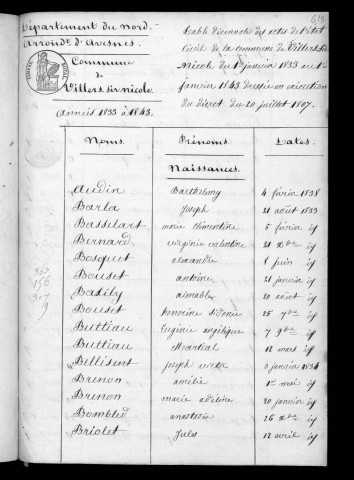 Département du Nord.
Arrondt d'Avesnes.
Commune
de
Villers-sir-nicole
Années 1833 à 1843.
Table décennale des actes de l'état
civil de la commune de Villers Sir
Nicole du 1er janvier 1833 au 1er
janvier 1843 dressée en exécution
du décret du 20 juillet 1807.
Noms. Prénoms. Dates.
Naissances.
Audin Barthélemy 4 février 1838
Barla Joseph 21 août 1833
Basselart marie clementine 5 février id
Bernard virginie valentine 21 Xbre id
Bosquet alexandre 1 juin id
Bouset antoine 21 janvier id
aimable 20 août id
Bouset honorine 25 7bre id
Buttiau Eugénie angélique 7 9bre id
Buttiau Martial 12 mars id
Bellisent joseph victor 3 janvier 1834
Brenon amélie 1er mai id
Brenon marie adeline 20 janvier id
Bombled anastasie 26 Xbre id
Briolet Jules 12 avril id
363
156
307
9